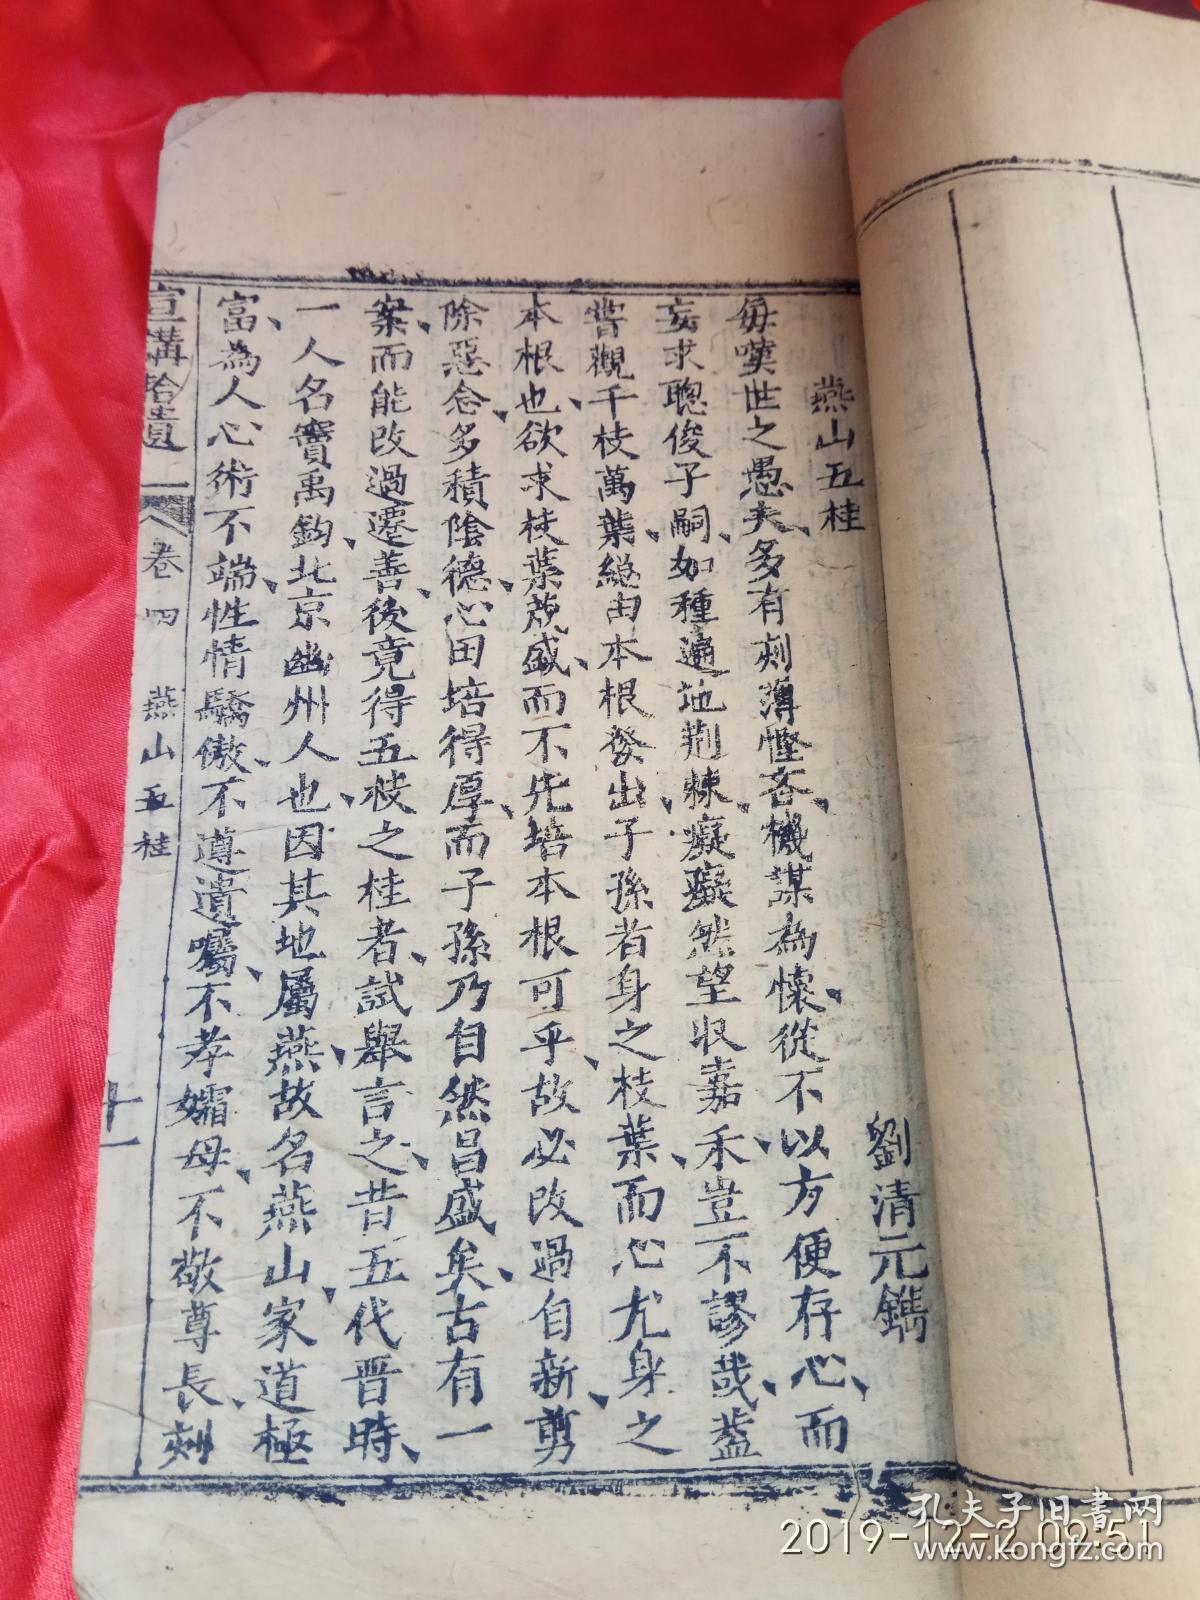 燕山五桂
劉清元鐫
每嘆世之愚夫、多有刻薄慳吝、機謀為懷、從不以方便存心、而
妄求聰俊子嗣、如種遍地荆棘、癡癡然望收嘉禾、豈不謬哉、蓋
嘗觀千枝萬葉、總由本根發出、子孫者身之枝葉、而心尤身之
本根也、欲求枝葉茂盛、而不先培本根可乎、故必改過自新、剪
除惡念、多積陰德、心田培得厚、而子孫乃自然昌盛矣、古有一
案、而能改過遷善、後竟得五枝之桂者、試舉言之、昔五代晋時、
一人名竇禹鈞、北京幽州人也、因其地屬燕、故名燕山、家道極
富、為人心術不端、性情驕傲、不遵遺囑、不孝孀母、不敬尊長、刻
宣講拾遺 卷四 燕山五桂 十一
孔夫子旧書网
www.kongfz.com
2019-12-2 09:51